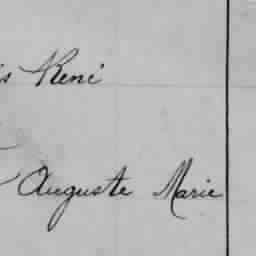 s René
Auguste Marie